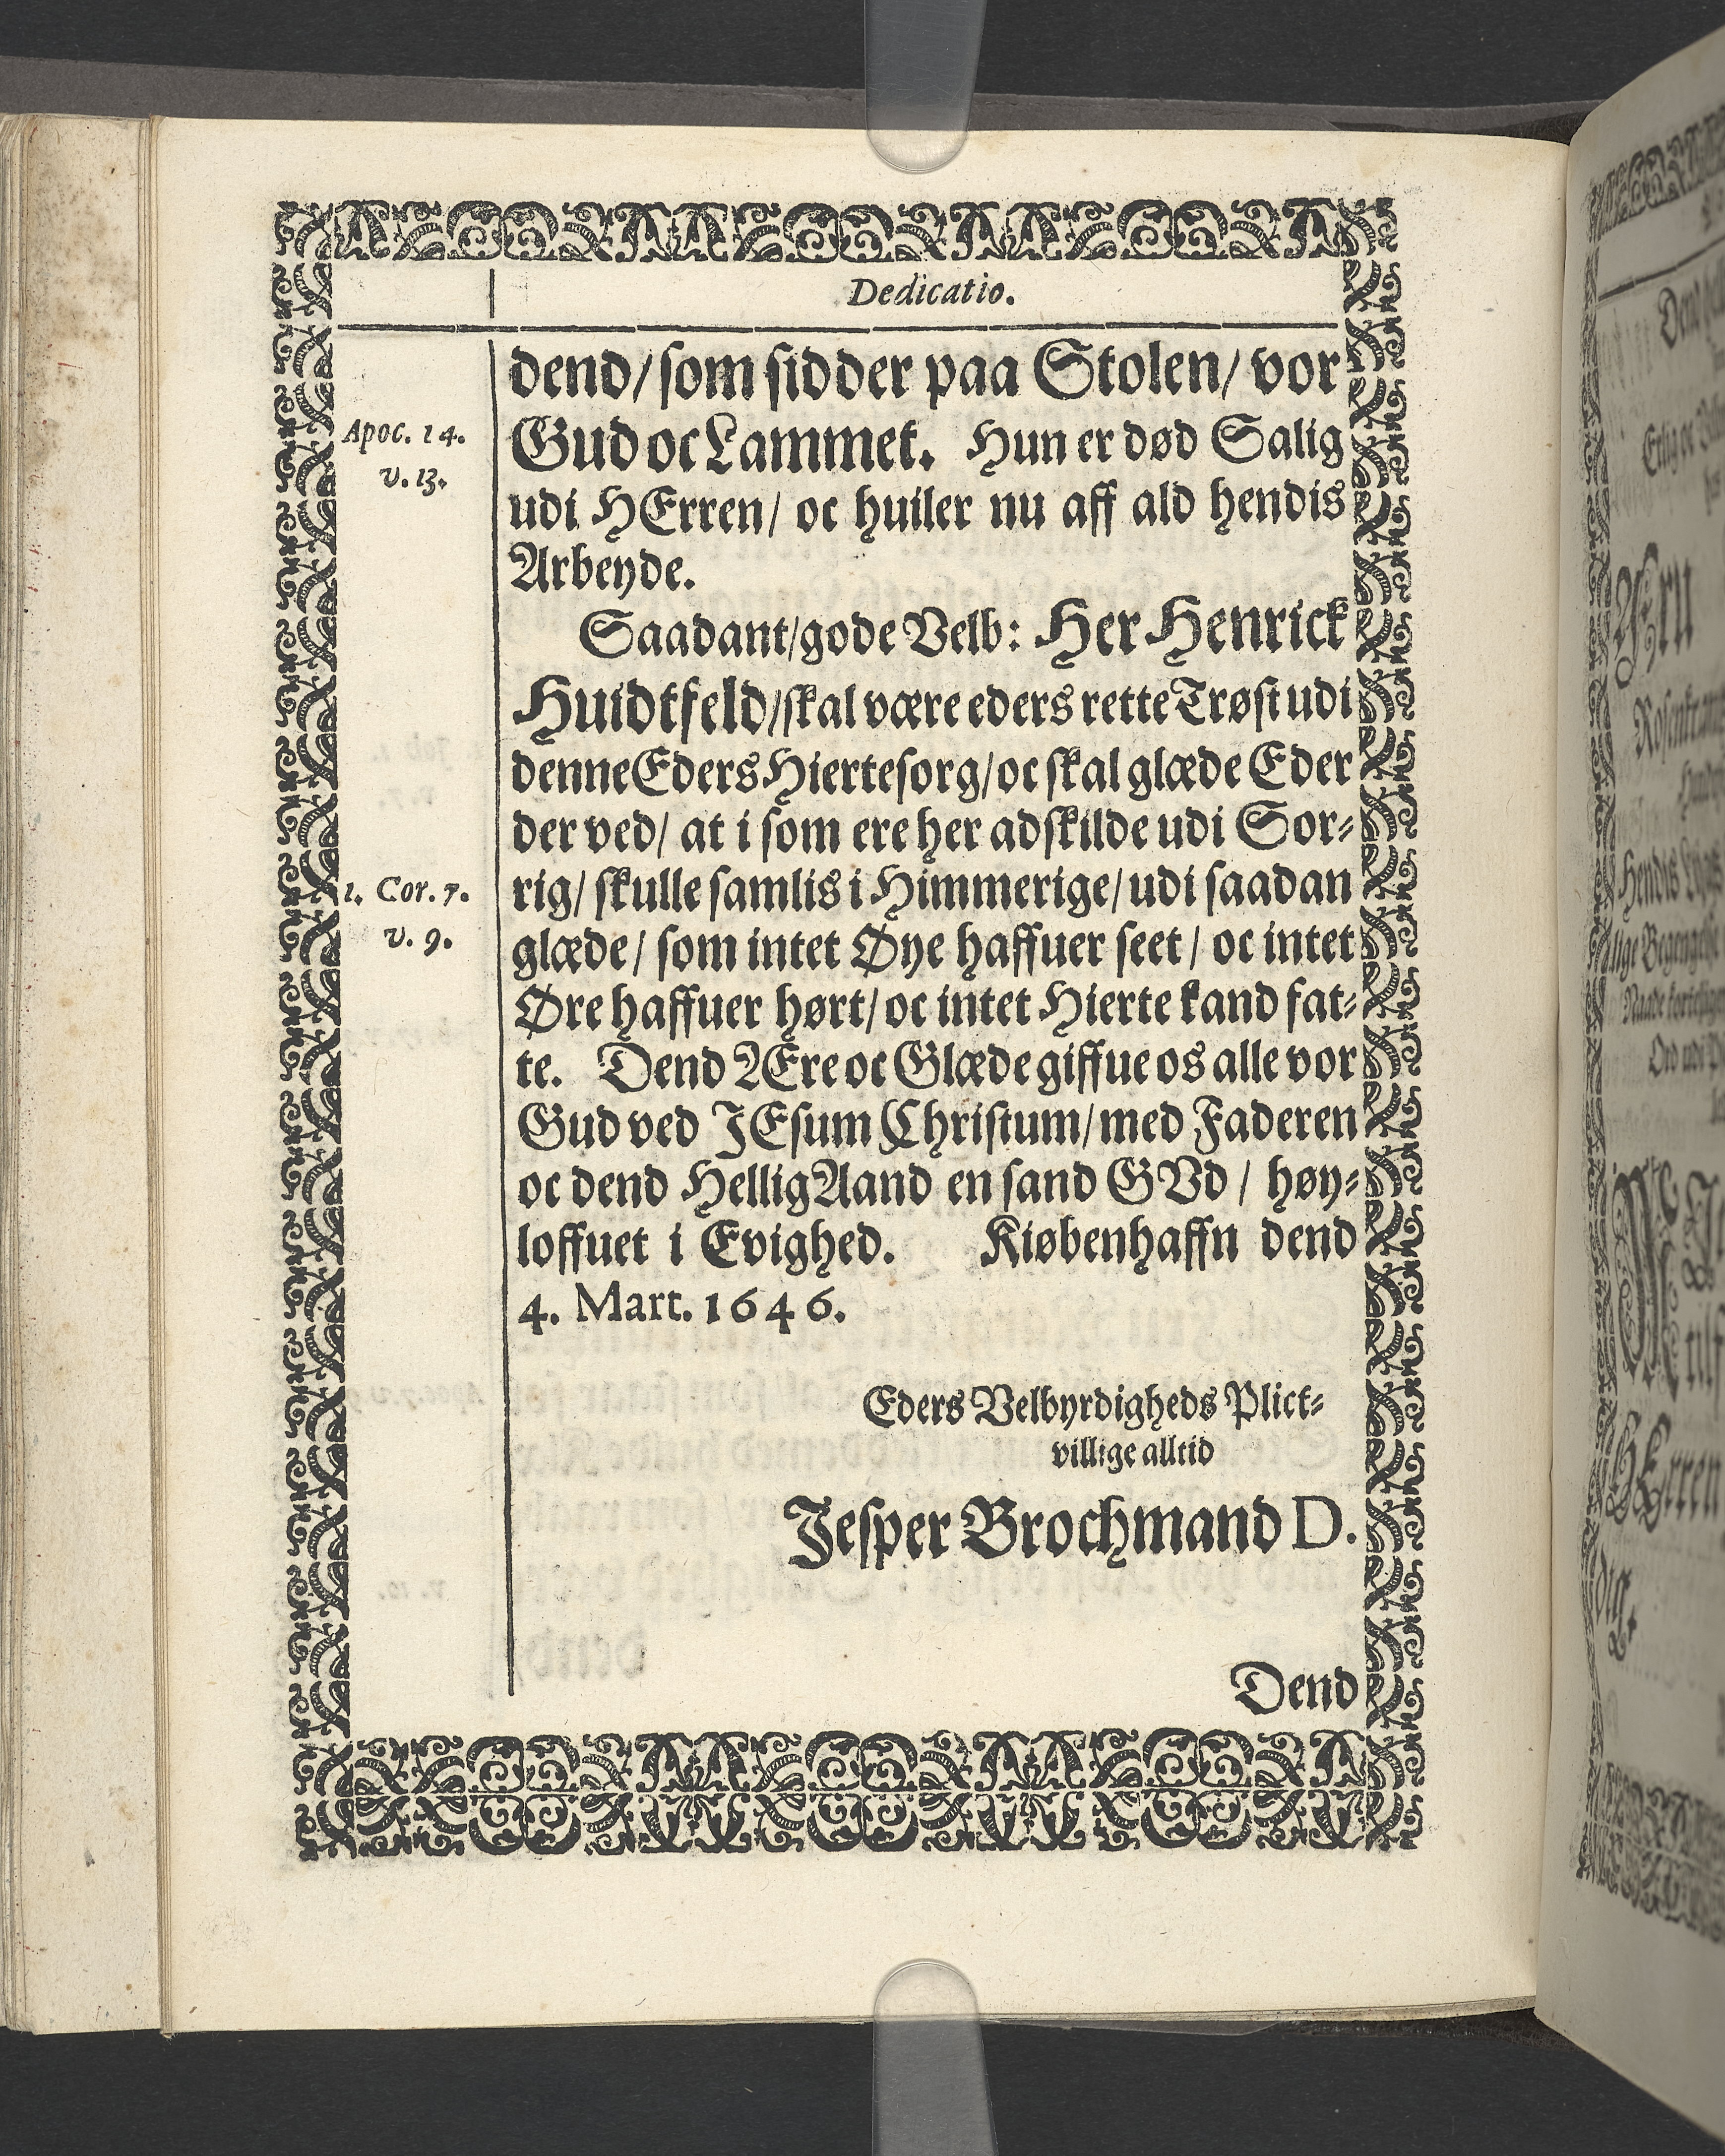 Dedicatio.
dend/ som sidder paa Stolen/ vor
Apoc. 14.
v. 13.
Gud oc Lammet. Hun er død Salig
udi HErren/ oc huiler nu aff ald hendis
Arbeyde.
Saadant/ gode Velb: Her Henrick
Huidtfeld/ skal være eders rette Trøst udi
denne Eders Hiertesorg/ oc skal glæde Eder
der ved/ at i som ere her adskilde udi Sor-
1. Cor. 7.
v. 9.
rig/ skulle samlis i Himmerige/ udi saadan
glæde/ som intet Øye haffuer seet/ oc intet
Øre haffuer hørt/ oc intet Hierte kand fat-
te. Dend ÆEre oc Glæde giffue os alle vor
Gud ved JEsum Christum/ med Faderen
oc dend Hellig Aand en sand GVd/ høy-
loffuet i Evighed. Kiøbenhaffn dend
4. Mart. 1646.
Eders Velbyrdigheds Plict-
villige alltid
Jesper Brochmand D.
Dend